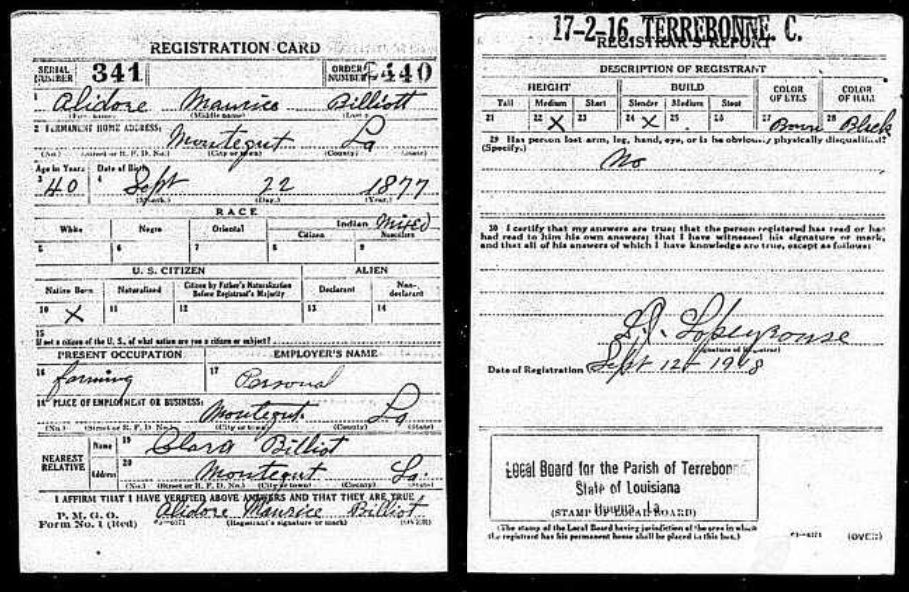 REGISTRATION CARD
SERIAL NUMBER 341 ORDER NUMBER 440
1 Alidore Maurice Billiott
(First name) (Middle name) (Last name)
2 PERMANENT HOME ADDRESS:
Montegut La
(No.) (Street or R. F. D. No.) (City or town) (County) (State)
Age in Years Date of Birth
3 40 4 Sept 22 1877
(Month.) (Day.) (Year.)
RACE
White Negro Oriental Indian Mixed
Citizen Noncitizen
5 6 7 8 9
U. S. CITIZEN ALIEN
Native Born Naturalized Citizen by Father's Naturalization Before Registrant's Majority Declarant Non-declarant
10 X 11 12 13 14
15
If not a citizen of the U. S., of what nation are you a citizen or subject?
PRESENT OCCUPATION EMPLOYER'S NAME
16 farming 17 Personal
18 PLACE OF EMPLOYMENT OR BUSINESS:
Montegut La
(No.) (Street or R. F. D. No.) (City or town) (County) (State)
NEAREST RELATIVE Name 19 Clara Billiot
Address 20 Montegut La.
(No.) (Street or R. F. D. No.) (City or town) (County) (State)
I AFFIRM THAT I HAVE VERIFIED ABOVE ANSWERS AND THAT THEY ARE TRUE
P. M. G. O.
Form No. 1 (Red) Alidore Maurice Billiot
(Registrant's signature or mark) (OVER)
17-2-16 TERREBONNE. C.
REGISTRAR'S REPORT
DESCRIPTION OF REGISTRANT
HEIGHT BUILD COLOR OF EYES COLOR OF HAIR
Tall Medium Short Slender Medium Stout
21 22 X 23 24 X 25 26 27 Brown 28 Black
29 Has person lost arm, leg, hand, eye, or is he obviously physically disqualified?
(Specify.)
No
30 I certify that my answers are true; that the person registered has read or has
had read to him his own answers; that I have witnessed his signature or mark,
and that all of his answers of which I have knowledge are true, except as follows:
(Signature of Registrar)
Date of Registration Sept 12 - 1918
Local Board for the Parish of Terrebonne
State of Louisiana
Houma, La
(STAMP OF LOCAL BOARD)
(The stamp of the Local Board having jurisdiction of the area in which
the registrant has his permanent home shall be placed in this box.)
03-6171 (OVER)